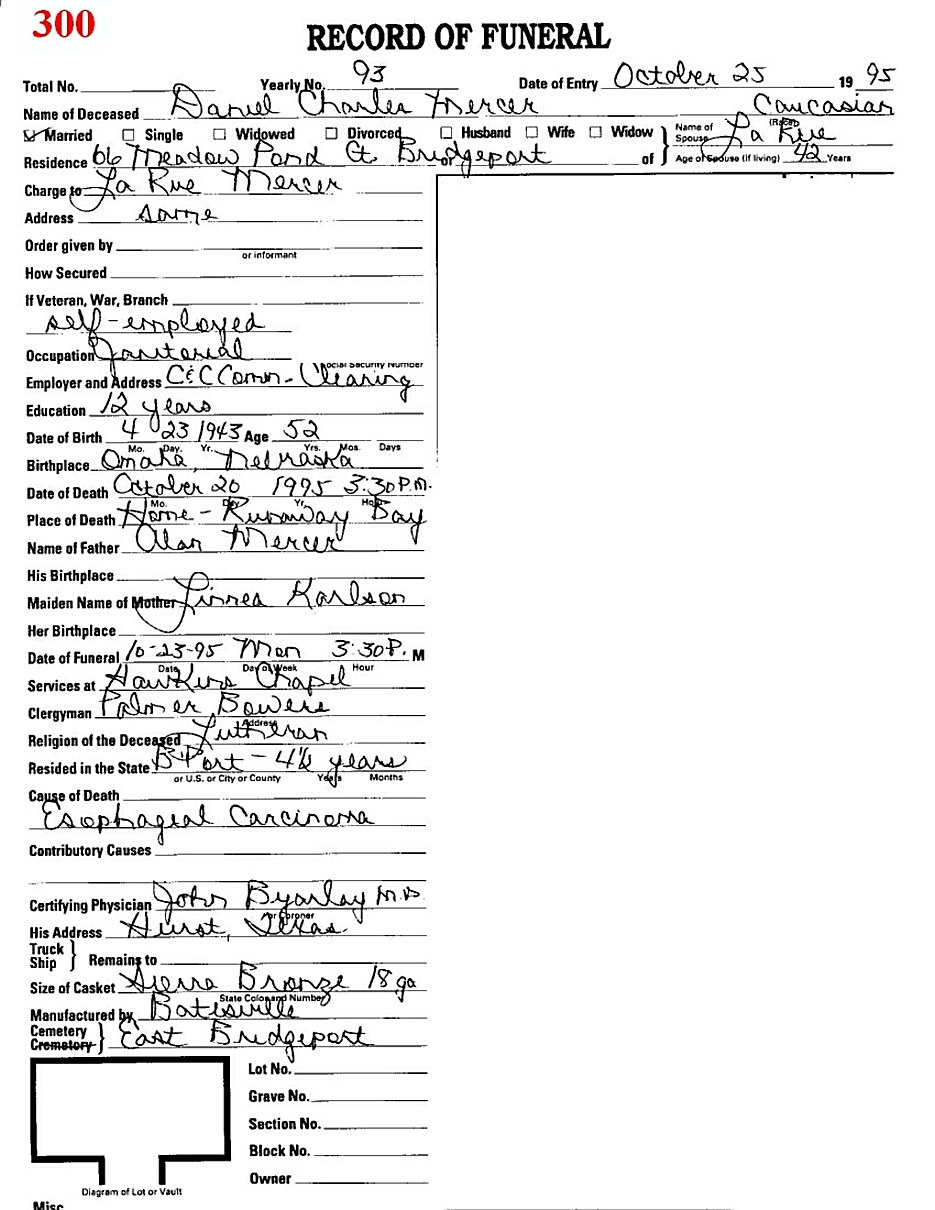 300
RECORD OF FUNERAL
Total No. Yearly No. 93 Date of Entry October 25 19 95
Name of Deceased Daniel Charles Mercer Caucasian
(Race)
☑ Married ☐ Single ☐ Widowed ☐ Divorced ☐ Husband ☐ Wife ☐ Widow of } Name of Spouse La Rue
Residence 66 Meadow Pond Ct Bridgeport Age of Spouse (if living) 42 Years
Charge to La Rue Mercer
Address same
Order given by
or informant
How Secured
If Veteran, War, Branch
self-employed
Occupation Janitorial
Social Security Number
Employer and Address C&C Comm- Cleaning
Education 12 years
Date of Birth 4 23 1943 Age 52
Mo. Day. Yr. Yrs. Mos. Days
Birthplace Omaha, Nebraska
Date of Death October 20 1995 3:30 P.M.
Mo. Day Yr. Hour
Place of Death Home - Runaway Bay
Name of Father Alan Mercer
His Birthplace
Maiden Name of Mother Linnea Karlson
Her Birthplace
Date of Funeral 10-23-95 Mon 3:30 P. M
Date Day of Week Hour
Services at Hawkins Chapel
Clergyman Palmer Bowers
Address
Religion of the Deceased Lutheran
Resided in the State B'Port - 4½ years
or U.S. or City or County Years Months
Cause of Death
Esophageal Carcinoma
Contributory Causes
Certifying Physician John Byarlay M.D.
or Coroner
His Address Hurst, Texas.
Truck
Ship } Remains to
Size of Casket Sierra Bronze 18 ga
State Color and Number
Manufactured by Batesville
Cemetery
Crematory } East Bridgeport
Lot No.
Grave No.
Section No.
Block No.
Owner
Diagram of Lot or Vault
Misc.